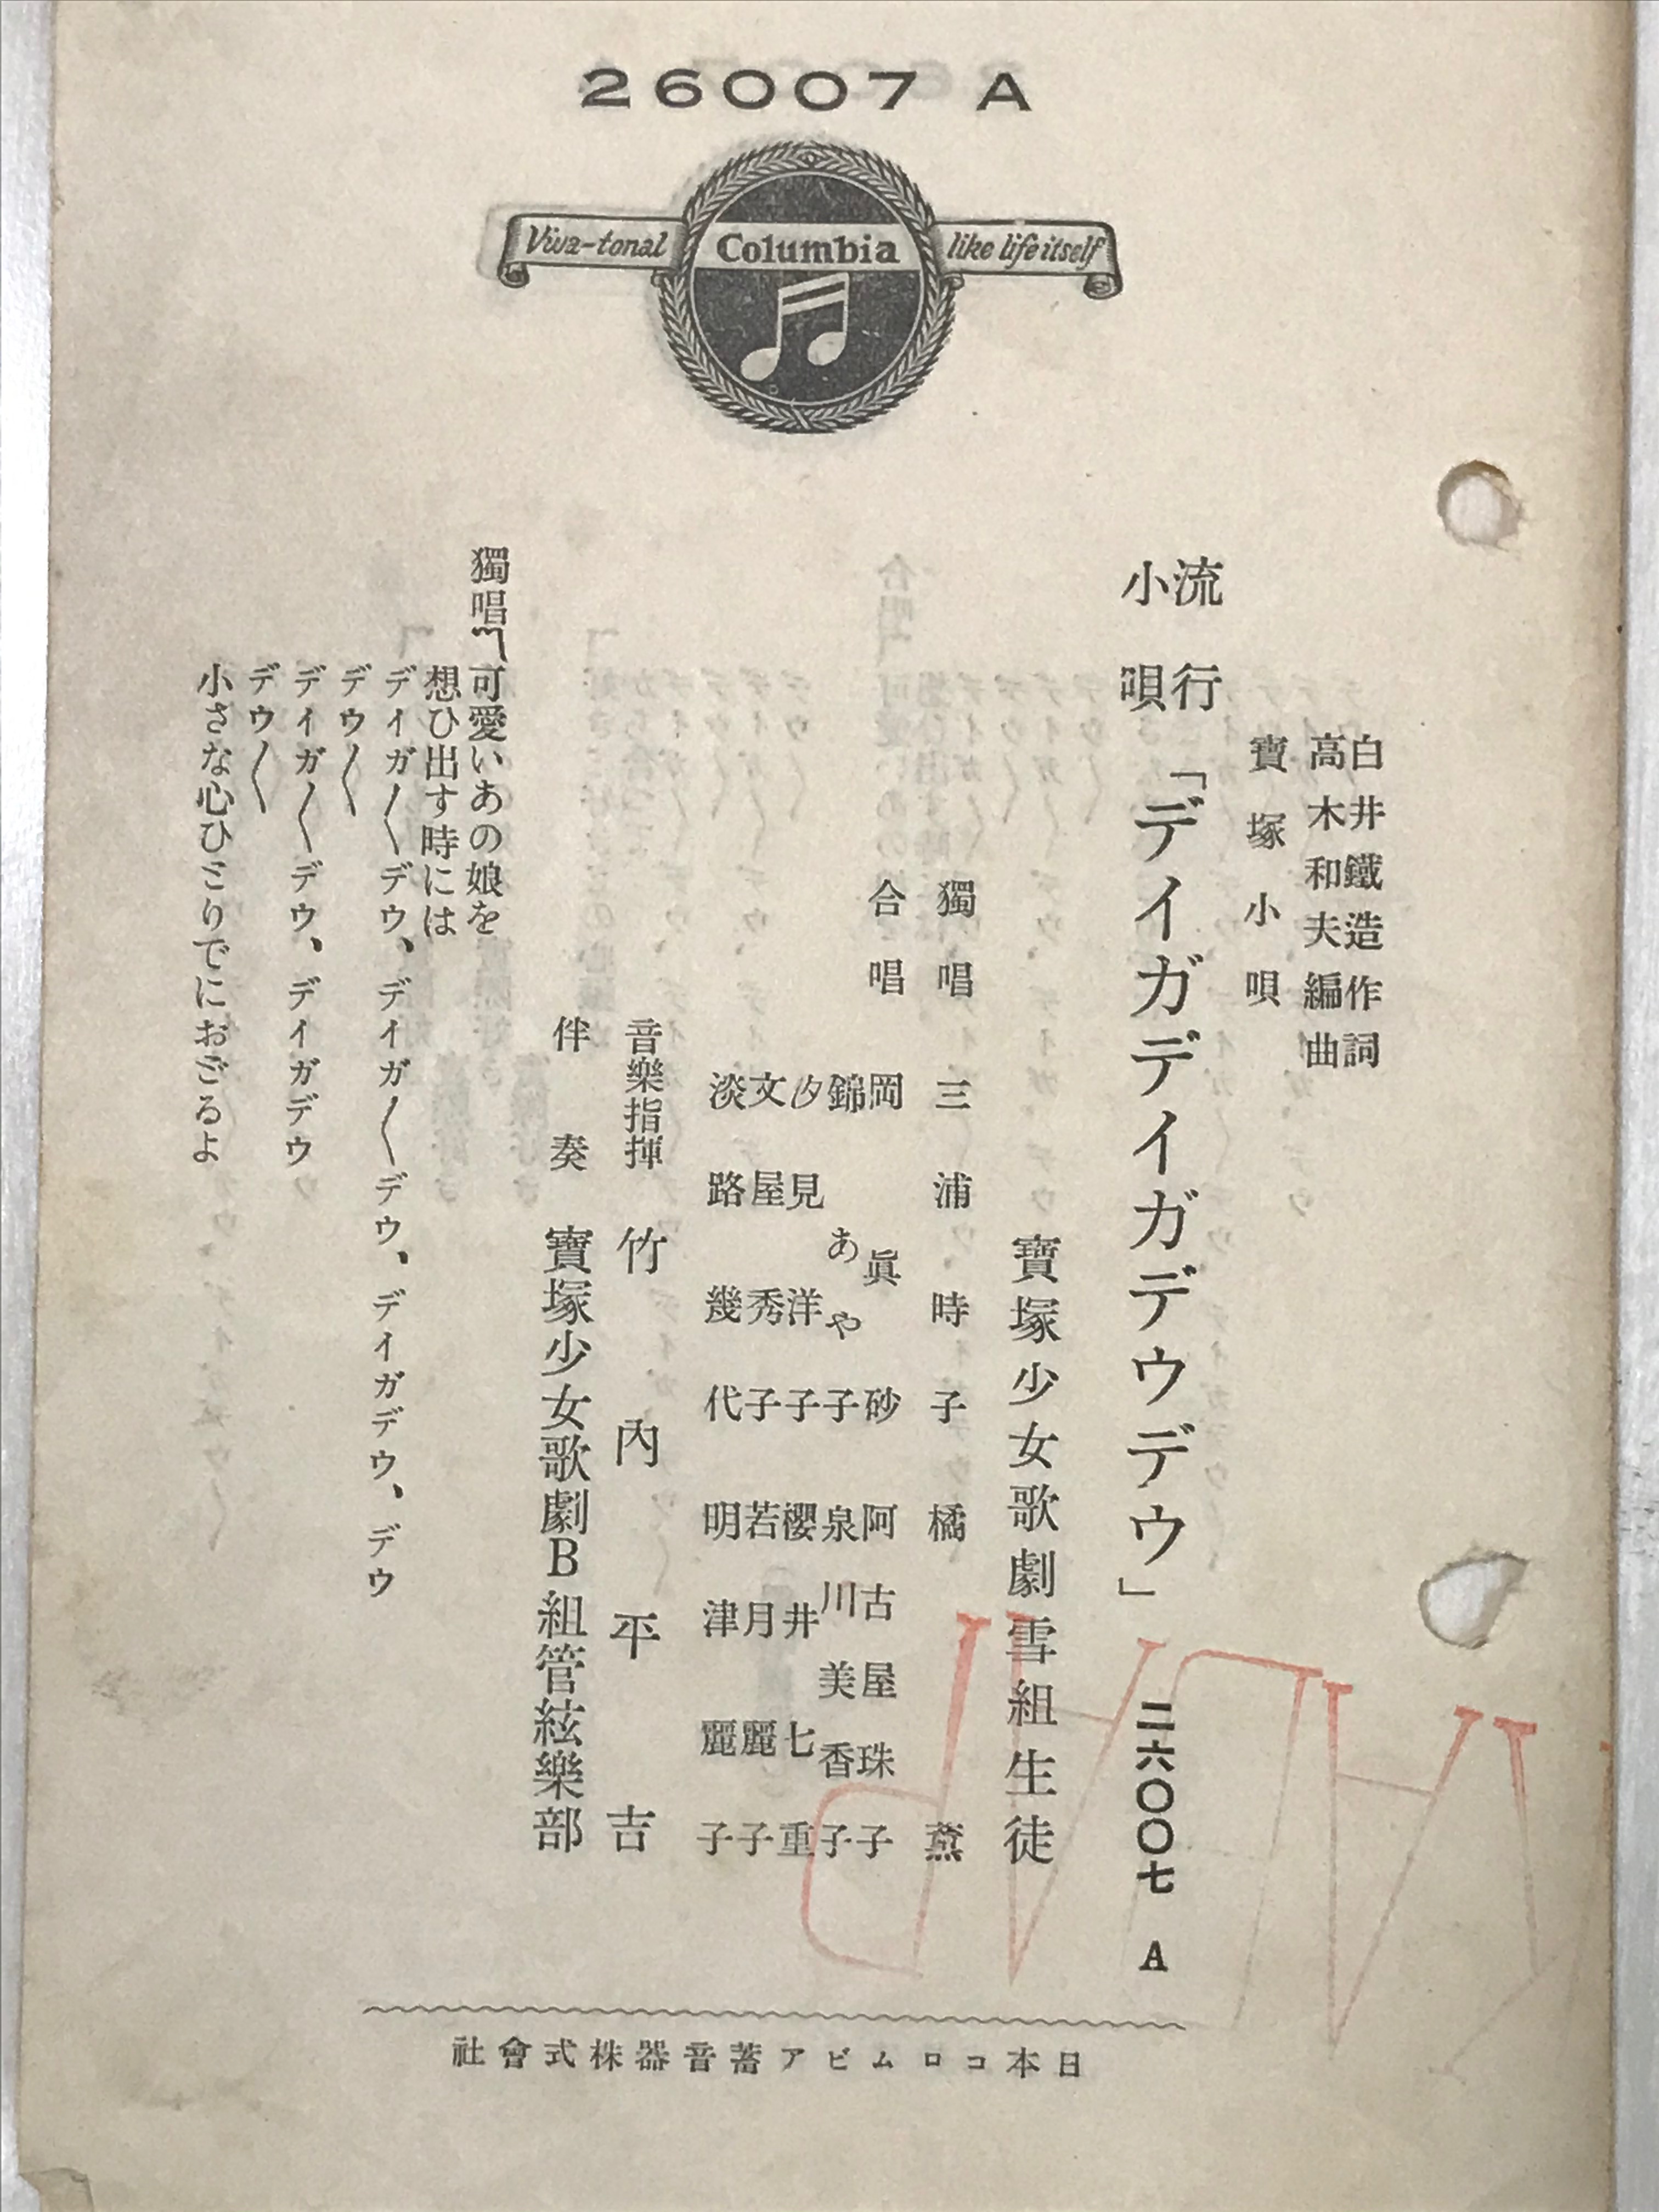 26007 A
Viva-tonal Columbia like life itself
白井鐵造作詞
高木和夫編曲
寶塚小唄
流行
小唄
「デイガデイガデウデウ」 二六〇〇七 A
寶塚少女歌劇雪組生徒
獨唱 三浦時子 橘薫
合唱 岡眞砂 阿古屋珠子
錦あや子 泉川美香子
汐見洋子 櫻井七重
文屋秀子 若月麗子
淡路幾代 明津麗子
音樂指揮 竹內平吉
伴奏 寶塚少女歌劇B組管絃樂部
獨唱 〽可愛いあの娘を
想ひ出す時には
デイガ〱デウ、デイガ〱デウ、デイガデウ、デウ
デウ〱
デイガ〱デウ、デイガデウ
デウ〱
小さな心ひとりでにおどるよ
社會式株器音蓄アビムロコ本日